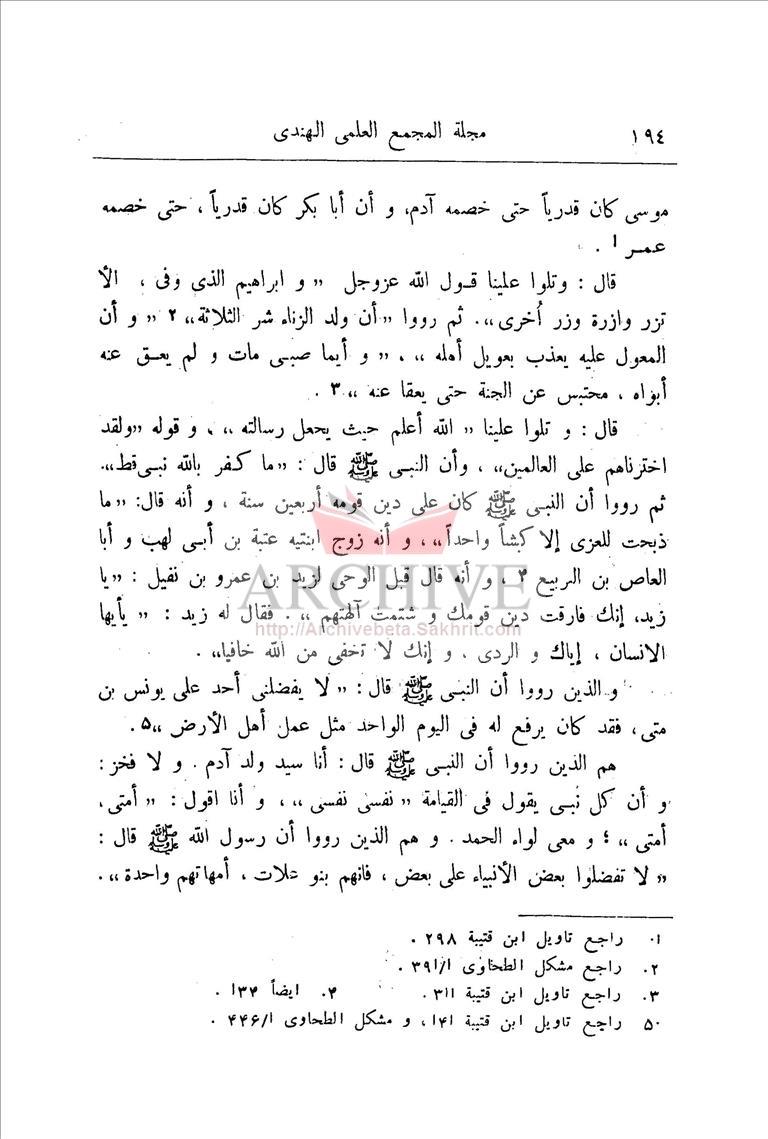 ١٩٤ مجلة المجمع العلمى الهندى
موسى كان قدرياً حتى خصمه آدم، و أن أبا بكر كان قدرياً ، حتى خصمه
عمر ١ .
قال : وتلوا علينا قول الله عزوجل „ و ابراهيم الذى وفى ، الأ
تزر وازرة وزر أُخرى„. ثم رووا „أن ولد الزناء شر الثلاثة„ ٢ „ و أن
المعول عليه يعذب بعويل أهله „ ، „ و أيما صبى مات و لم يعق عنه
أبواه ، محتبس عن الجنة حتى يعقا عنه „ ٣ .
قال : و تلوا علينا „ الله أعلم حيث يجعل رسالته „ ، و قوله „ولقد
اخترناهم على العالمين„ ، وأن النبى ﷺ قال : „ما كفر بالله نبى قط„.
ثم رووا أن النبى ﷺ كان على دين قومه أربعين سنة ، و أنه قال: „ما
ذبحت للعزى إلا كبشاً واحداً„ ، و أنه زوج ابنتيه عتبة بن أبى لهب و أبا
العاص بن الربيع ٣ ، و أنه قال قبل الوحى لزيد بن عمرو بن نفيل : „يا
زيد، إنك فارقت دين قومك و شتمت آلهتهم „ . فقال له زيد : „ يأيها
الانسان ، إياك و الردى ، و إنك لا تخفى من الله خافيا„.
و الذين رووا أن النبى ﷺ قال : „ لا يفضلنى أحد على يونس بن
متى، فقد كان يرفع له فى اليوم الواحد مثل عمل أهل الأرض „٥.
هم الذين رووا أن النبى ﷺ قال : أنا سيد ولد آدم . و لا فخز :
و أن كل نبى يقول فى القيامة „نفسى نفسى „ ، و أنا اقول : „ أمتى،
أمتى „ ؛ و معى لواء الحمد . و هم الذين رووا أن رسول الله ﷺ قال :
„ لا تفضلوا بعض الأنبياء على بعض ، فانهم بنو علات ، أمهاتهم واحدة „.
١. راجع تاويل ابن قتيبة ٢٩٨ .
٢. راجع مشكل الطحاوى ٣٩١/١ .
٣. راجع تاويل ابن قتيبة ٣١١. ۴. ايضاً ١٣۴ .
٥٠ راجع تاويل ابن قتيبة ١۴١ ، و مشكل الطحاوى ۴۴۶/١ .
ARCHIVE
http://Archivebeta.Sakhrit.com